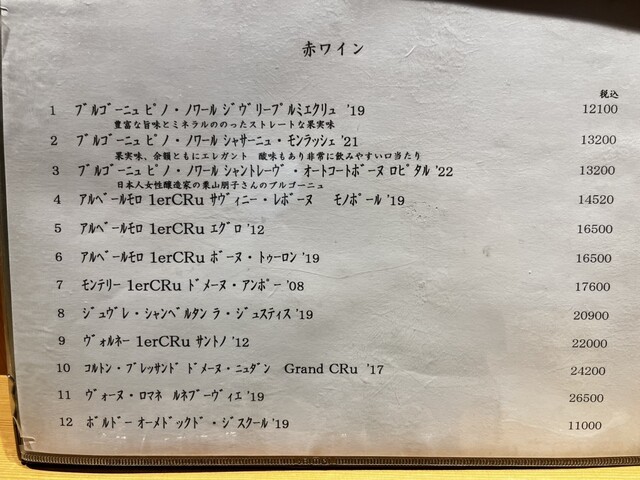 赤ワイン
税込
1 ﾌﾞﾙｺﾞｰﾆｭ ﾋﾟﾉ・ﾉﾜｰﾙ ｼﾞｳﾞﾘｰﾌﾟﾙﾐｴｸﾘｭ '19 12100
豊富な旨味とミネラルののったストレートな果実味
2 ﾌﾞﾙｺﾞｰﾆｭ ﾋﾟﾉ・ﾉﾜｰﾙ ｼｬｻｰﾆｭ・ﾓﾝﾗｯｼｪ '21 13200
果実味、余韻ともにエレガント 酸味もあり非常に飲みやすい口当たり
3 ﾌﾞﾙｺﾞｰﾆｭ ﾋﾟﾉ・ﾉﾜｰﾙ ｼｬﾝﾄﾚｰｳﾞ・ｵｰﾄｺｰﾄﾎﾞｰﾇ ﾛﾋﾟﾀﾙ '22 13200
日本人女性醸造家の栗山朋子さんのブルゴーニュ
4 ｱﾙﾍﾞｰﾙﾓﾛ 1erCRu ｻｳﾞｨﾆｰ・ﾚﾎﾞｰﾇ ﾓﾉﾎﾟｰﾙ '19 14520
5 ｱﾙﾍﾞｰﾙﾓﾛ 1erCRu ｴｸﾞﾛ '12 16500
6 ｱﾙﾍﾞｰﾙﾓﾛ 1erCRu ﾎﾞｰﾇ・ﾄｩｰﾛﾝ '19 16500
7 ﾓﾝﾃﾘｰ 1erCRu ﾄﾞﾒｰﾇ・ｱﾝﾎﾟｰ '08 17600
8 ｼﾞｭｳﾞﾚ・ｼｬﾝﾍﾞﾙﾀﾝ ﾗ・ｼﾞｭｽﾃｨｽ '19 20900
9 ｳﾞｫﾙﾈｰ 1erCRu ｻﾝﾄﾉ '12 22000
10 ｺﾙﾄﾝ・ﾌﾞﾚｯｻﾝﾄﾞ ﾄﾞﾒｰﾇ・ﾆｭﾀﾞﾝ Grand CRu '17 24200
11 ｳﾞｫｰﾇ・ﾛﾏﾈ ﾙﾈﾌﾞｰｳﾞｨｴ '19 26500
12 ﾎﾞﾙﾄﾞｰ ｵｰﾒﾄﾞｯｸﾄﾞ・ｼﾞｽｸｰﾙ '19 11000